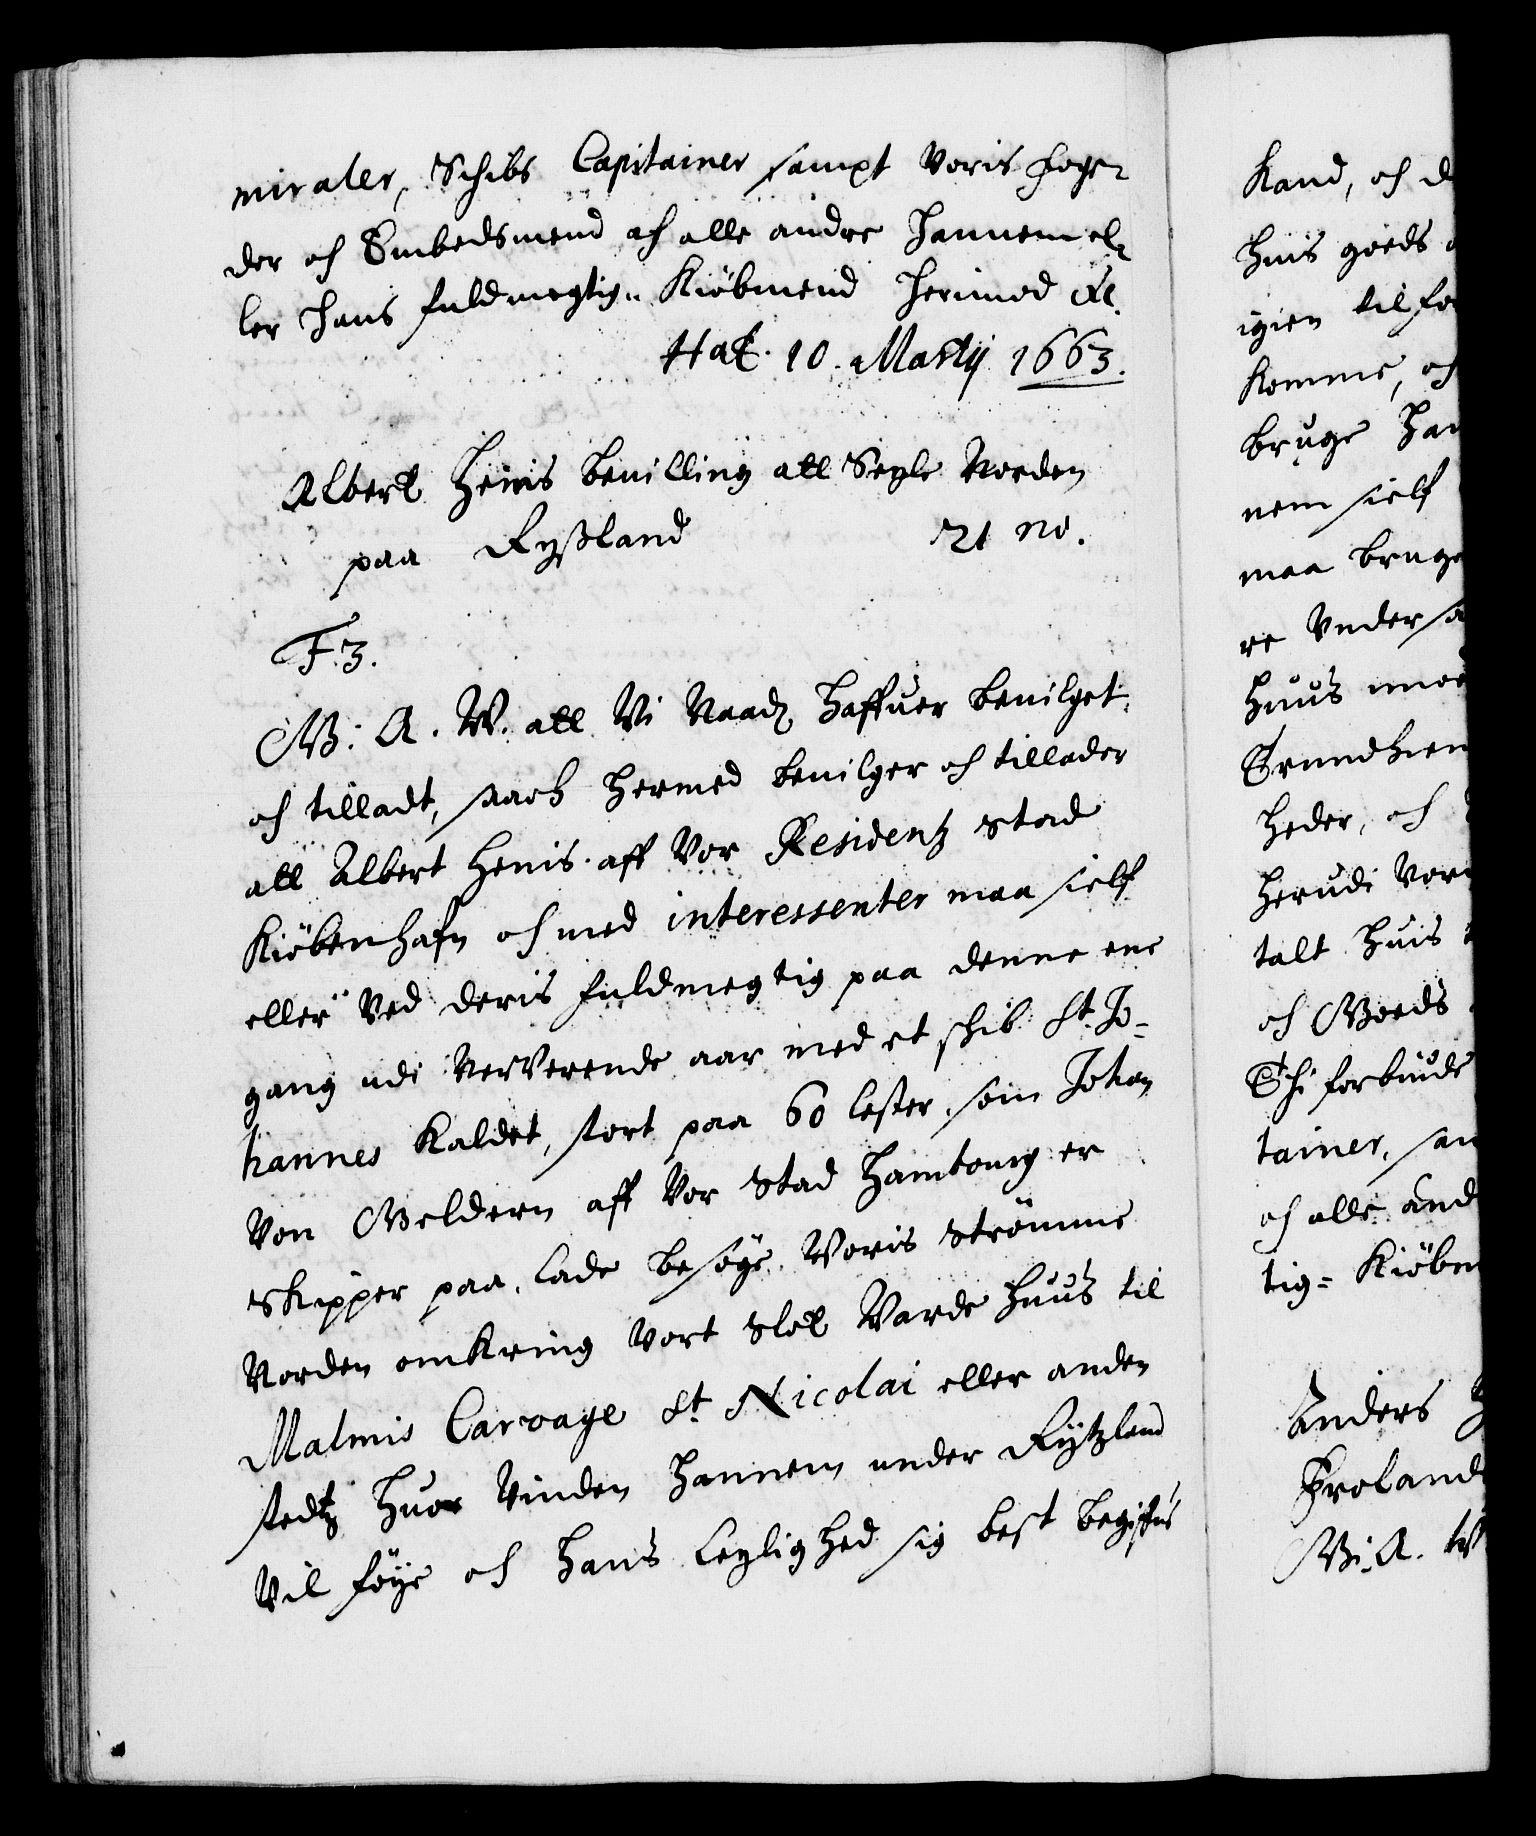 miraler, Schibs Capitainer sampt Voris foge-
der och Embedsmend och alle andre hannem el-
ler hans fuldmegtig: Kiöbmend herimod &c.
Haf. 10. Martij 1663.
Albert Heins bevilling att Segle Norden
paa Rysland 21 no.
F. 3.
G: A. W. att Vi Naadz haffuer bevilget
och tilladt, saa och hermed bevilger och tillader
att Albert Henis aff Vor Residentz stad
Kiöbenhafn och med interessenter maa sielf
eller Ved deris fuldmegtig paa denne ene
gang udi nerVerende aar med et schib St. Jo-
hannes Kaldet, stort paa 60 lester som Johan
Von Geldern aff Vor Stad Hamborg er
skipper paa, lade besøge Voris strömme
Norden omkring Vort Slot Wardehuus til
Malmis Carvage St. Nicolai eller anden
stedtz huor Vinden hannem under Rytzland
Vil føye och hans leylighed sig best begifue
Kand, och d
huis goeds
igien til fo
Komme, och
bruge han
nem sielf
maa bruge
re Undersa
huus
Trundhiem
heder, och
herudi Vor
talt huis
och Goeds
Thi forbiude
tainer, sam
och alle and
tig= Kiöbm
Anders
G: A. W